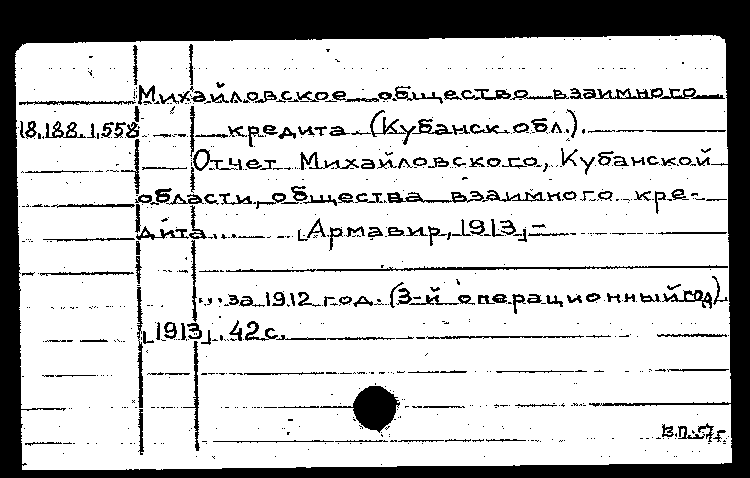 Михайловское общество взаимного
18.188.1.558 кредита (Кубанск. обл.).
Отчет Михайловского, Кубанской
области, общества взаимного кре-
дита... [Армавир, 1913] -
...за 1912 год. (3-й операционный год).
[1913]. 42 с.
В.П.-57г.